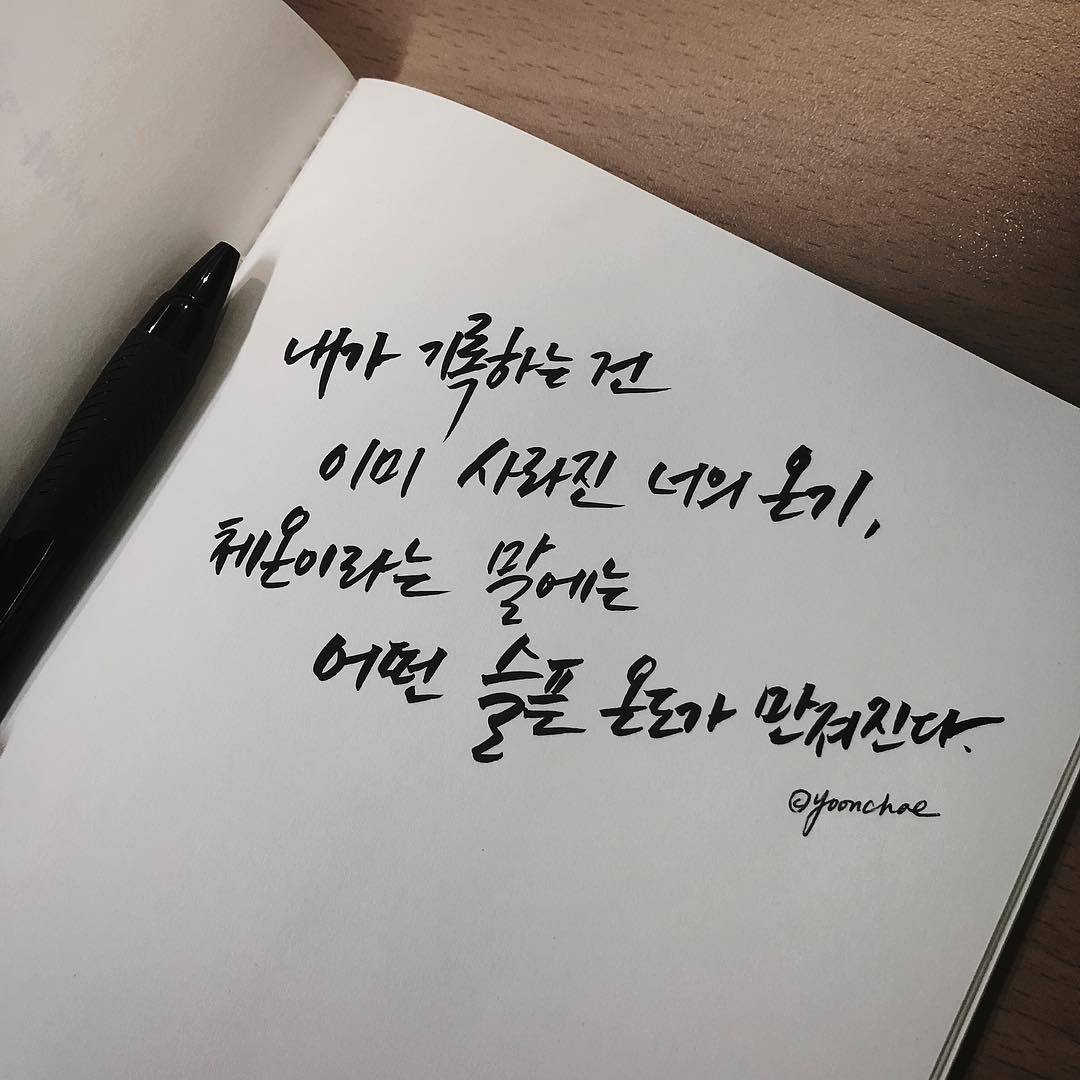 내가 기록하는 건
이미 사라진 너의 온기,
체온이라는 말에는
어떤 슬픈 온도가 만져진다.
©yoonchae